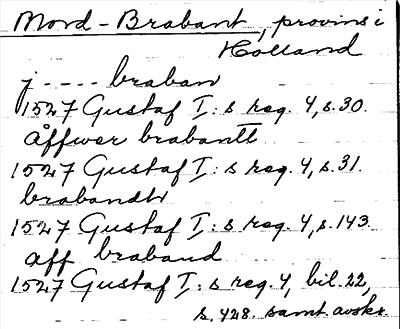 Nord-Brabant, provins i
Holland
j ---- braban
1527 Gustaf I:s reg. 4, s. 30.
åffwer brabantt
1527 Gustaf I:s reg. 4, s. 31.
brabandtt
1527 Gustaf I:s reg. 4, s. 143.
aff braband
1527 Gustaf I:s reg. 4, bil. 22,
s. 428. samt avskr.